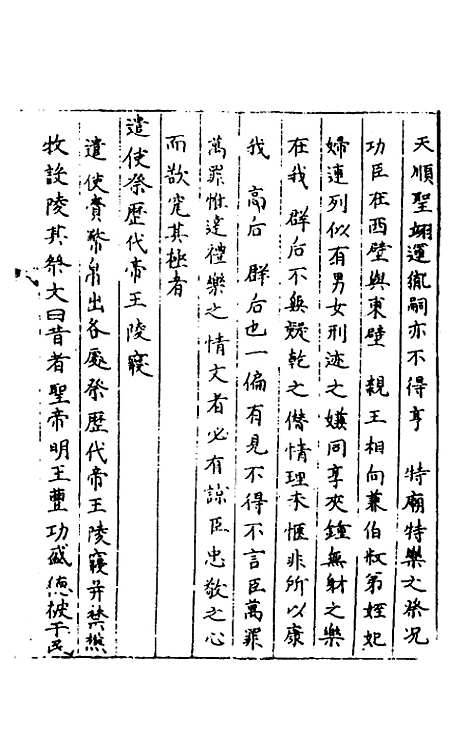 天順聖翊運徹嗣亦不得享　特廟特樂之祭况
功臣在西壁與東壁　親王相向兼伯叔弟姪妃
婦連列似有男女刑迹之嫌同享夾鍾無射之樂
在我　群后不無疑乾之僣情理未愜非所以康
我　高后　群后也一偏有見不得不言臣萬罪
萬罪惟達禮樂之情文者必有諒臣忠敬之心
而欲究其極者
遣使祭歷代帝王陵寢
遣使賫幣帛出各處祭歷代帝王陵寢并禁樵
牧設陵其祭文曰昔者聖帝明王豊功盛德被于民